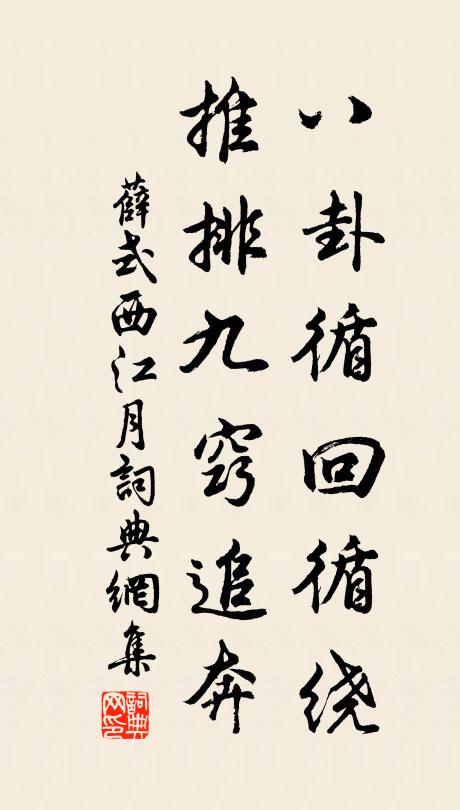 八卦循回循绕
推排九窍追奔
薛式西江月詞典網集
詞典网印